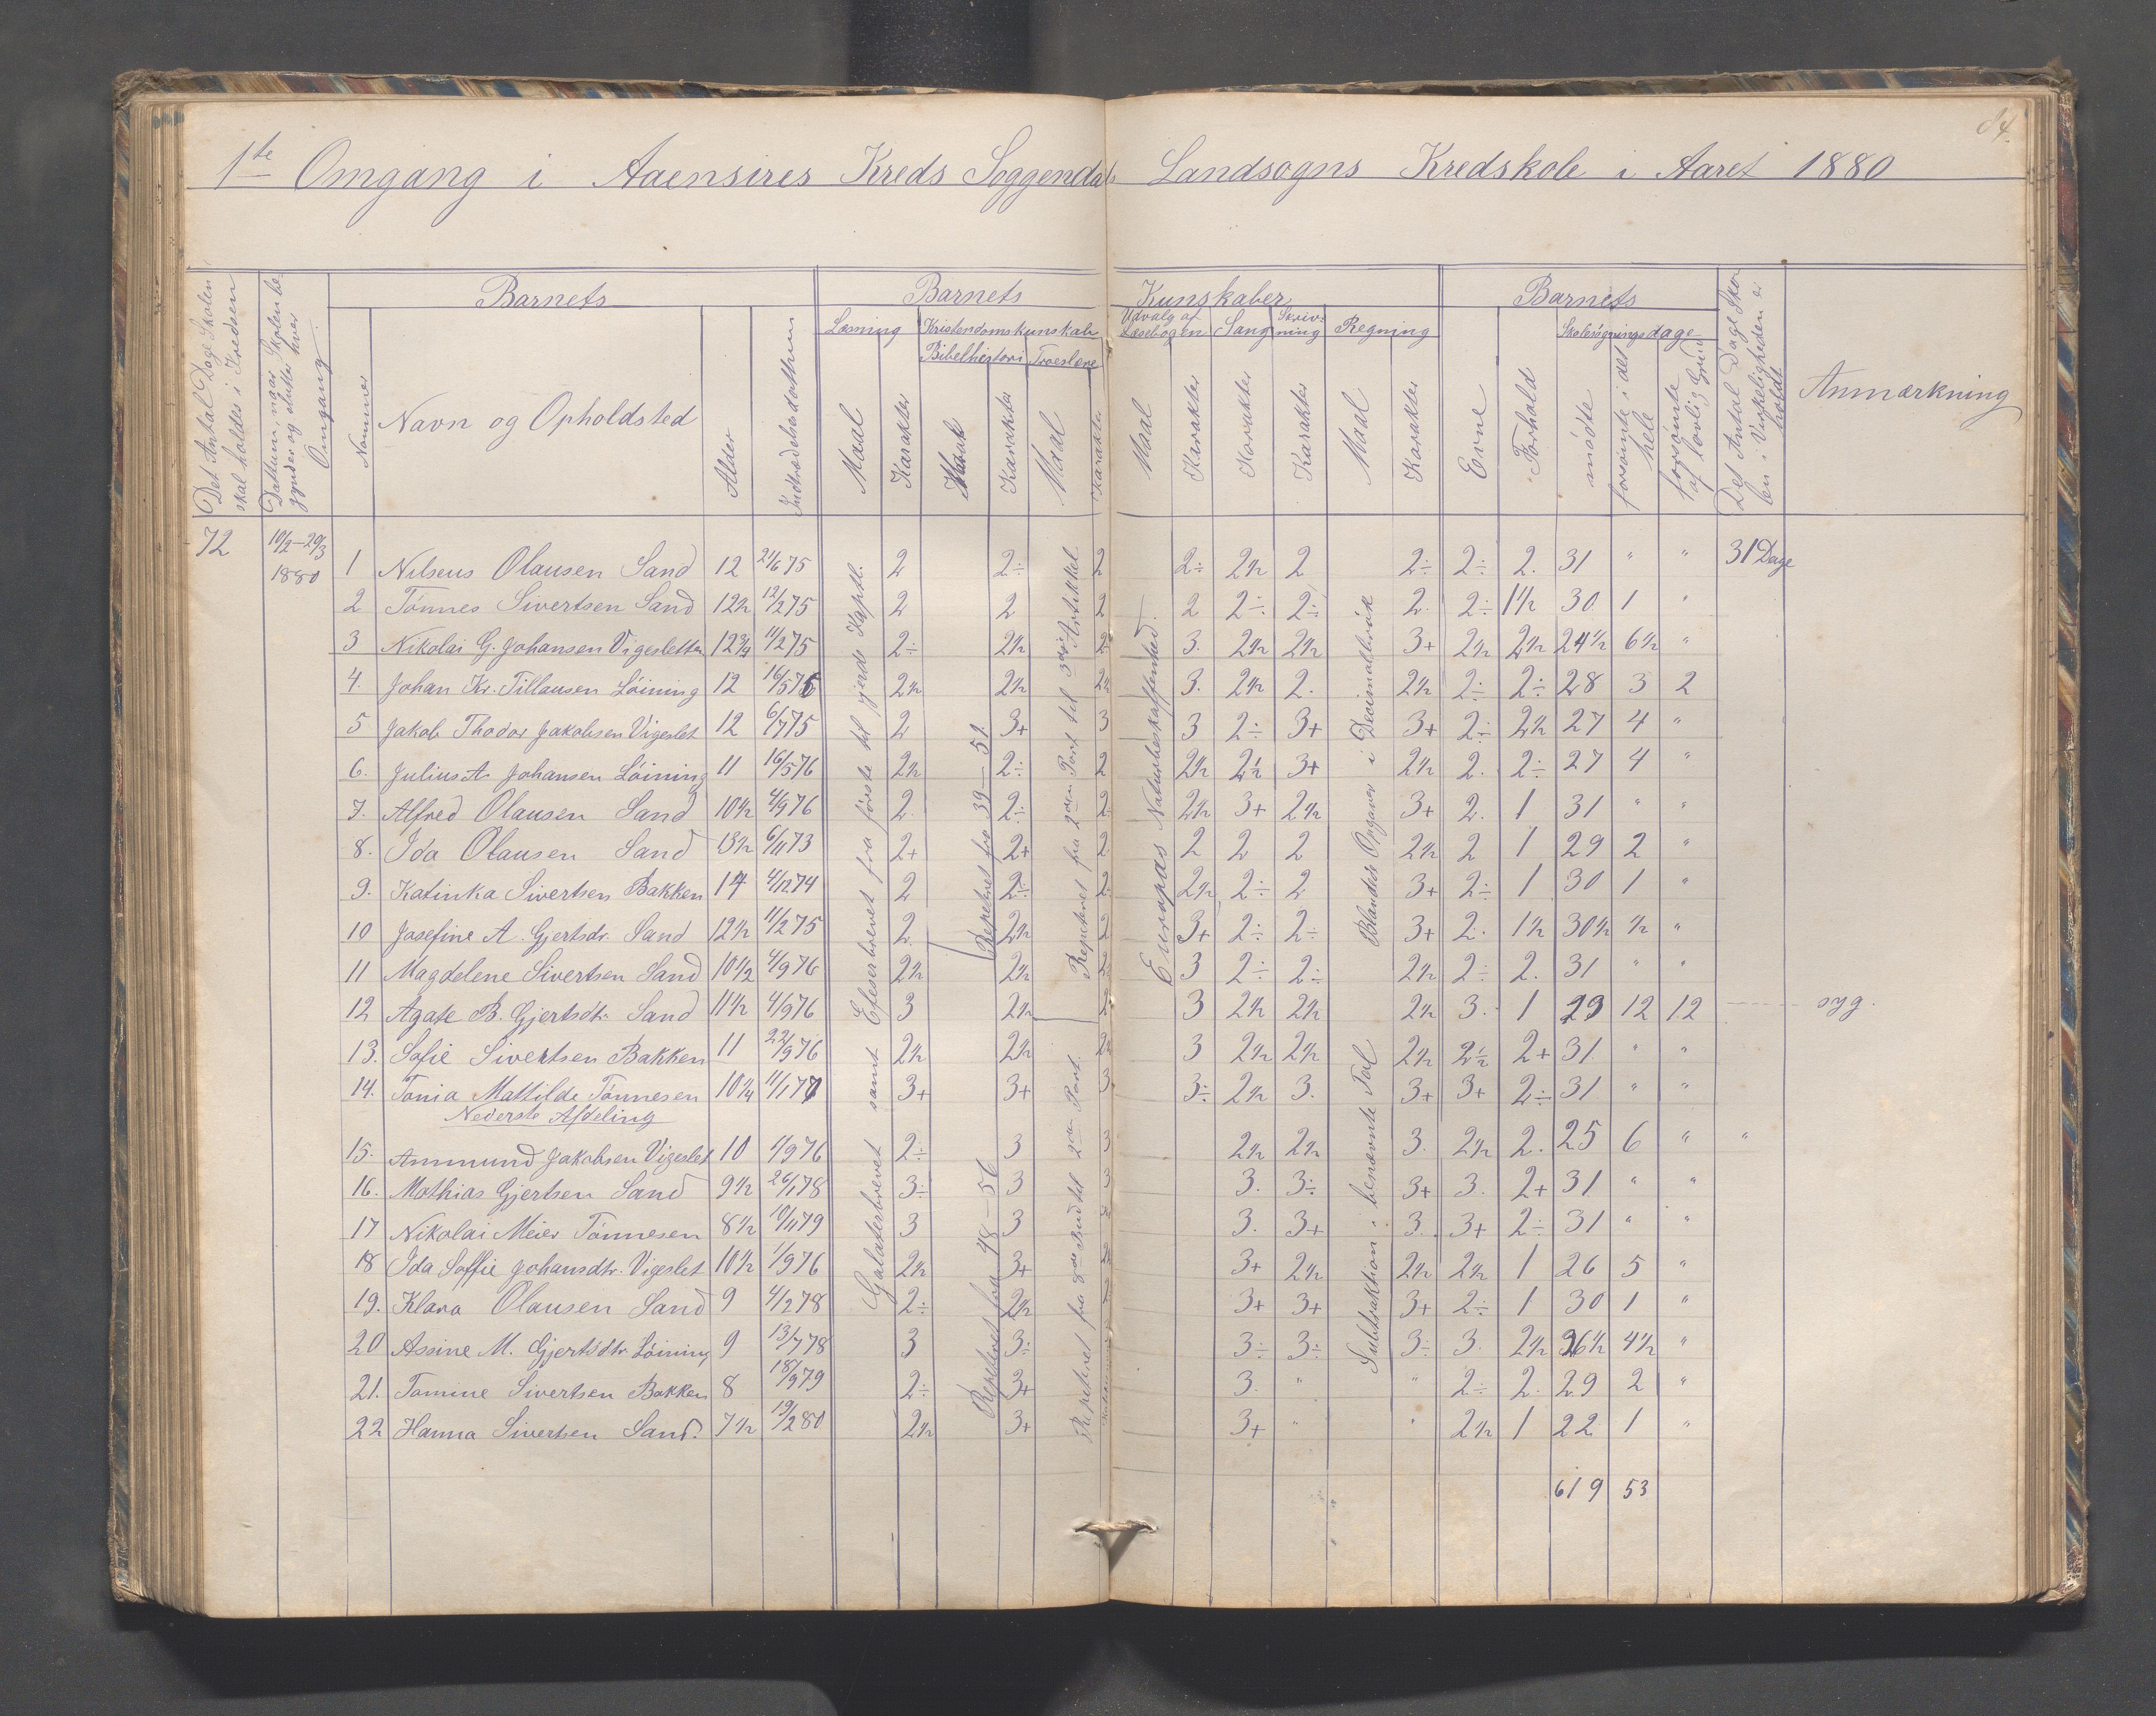 84.
1te Omgang i Aaensires Kreds Soggendals Landsogns Kredskole i Aaret 1880
Det Antal Dage Skolen skal holdes i Kredsen
Datum, naar Skolen begynder og slutter hver Omgang
Barnets
Nummer
Navn og Opholdsted
Alder
Indtrædelsesdathum
Barnets Kunskaber
Læsning
Kristendomskunskab
Bibelhistori
Troeslære
Udvalg af Læsebogen
Sang
Skrivning
Regning
Maal Karakter Maal Karakter Maal Karakter Maal Karakter Karakter Karakter Maal Karakter
Barnets
Evne
Forhold
Skolesøgningsdage
mødte
forsømte i det hele
forsømte af lovlig Grund
Det Antal Dage Skolen i Virkeligheden er holdt
Anmærkning
72 10/2–20/3 1880
1 Nilseus Olausen Sand 12 21/6 75 2 2÷ 2 2÷ 2½ 2 2÷ 2÷ 2. 31 " " 31 Dage
2 Tønnes Sivertsen Sand 12½ 12/2 75 2 2 2 2 2÷ 2÷ 2. 2÷ 1½ 30 1 "
3 Nikolai G. Johansen Vigesletten 12¾ 11/2 75 2÷ 2½ 2÷ 3. 2½ 2½ 3+ 2½ 2½ 24½ 6½ "
4. Johan Kr. Tillausen Løining 12 16/5 76 2½ 2½ 2½ 3. 2½ 2. 2½ 2÷ 2÷ 28 3 2
5 Jakob Thodor Jakobsen Vigeslet 12 6/7 75 2 3+ 3 3 2÷ 3+ 3+ 2÷ 2½ 27 4 "
6. Julius A. Johansen Løining 11 16/5 76 2½ 2÷ 2 2½ 2½ 3+ 2½ 2. 2÷ 27 4 "
7. Alfred Olausen Sand 10½ 4/9 76 2. 2÷ 2 2½ 3+ 2½ 3+ 2. 1 31 " "
8. Ida Olausen Sand 13½ 6/11 73 2+ 2+ 2 2 2 2 2½ 2 1 29 2 "
9. Katinka Sivertsen Bakken 14 4/12 74 2 2÷ 2 2½ 2÷ 2 3+ 2÷ 1 30 1 "
10 Josefine A. Gjertsdr. Sand 12½ 11/2 75 2. 2½ 2 3+ 2÷ 2÷ 3+ 2. 1½ 30½ ½ "
11 Magdelene Sivertsen Sand 10½ 4/9 76 2½ 2½ 2 3 2÷ 2÷ 2½ 2÷ 2. 31 " "
12 Agate B. Gjertsdtr. Sand 11½ 4/9 76 3 2½ 2 3 2½ 2½ 2½ 3. 1 19 12 12 syg.
13. Sofie Sivertsen Bakken 11 22/9 76 2½ 2½ 2½ 3 2½ 2½ 2½ 2½ 2+ 31 " "
14. Tonia Mattilde Tønnesen 10¼ 11/1 77 3+ 3+ 3 3÷ 2½ 3. 3+ 3+ 2÷ 31 " "
Nederste Afdeling
15. Ammund Jakobsen Vigeslet 10 4/9 76 2÷ 3 3 2½ 2½ 3. 2½ 2. 25 6 " "
16. Mathias Gjertsen Sand 9½ 26/1 78 3÷ 3 3 3. 3÷ 3+ 3. 2+ 31 " "
17 Nikolai Meier Tønnesen 8½ 10/11 79 3 3 3. 3+ 3. 3+ 2÷ 31 " "
18 Ida Soffie Johansdtr. Vigeslet 10½ 1/9 76 2½ 3+ 3+ 2½ 2½ 2½ 1 26 5 "
19. Klara Olausen Sand 9 4/2 78 2÷ 2½ 3+ 3+ 3+ 2÷ 1 30 1 "
20 Assine M. Gjertsdtr. Løining 9 13/7 78 3 3÷ 3÷ 3÷ 3÷ 3. 2½ 26½ 4½ "
21. Tomine Sivertsen Bakken 8 18/9 79 2÷ 3+ 3. " " 2÷ 2. 29 2 "
22 Hanna Sivertsen Sand. 7½ 19/2 80 2½ 3+ 3+ " " 2½ 1 22 1 "
619 53
Efeserbrevet fra første til fjerde Kaptl.
samt Galaterbrevet
Repeteret fra 39–51.
Repeteret fra 48–56
Repeteret fra 2den Part til 3die Artikkel
Repeteret fra 8de Bud til 2den Part.
Europas Naturbeskaffenhed.
Blandede Opgaver i Decimalbrøk
Subtraktion i benævnte Tal